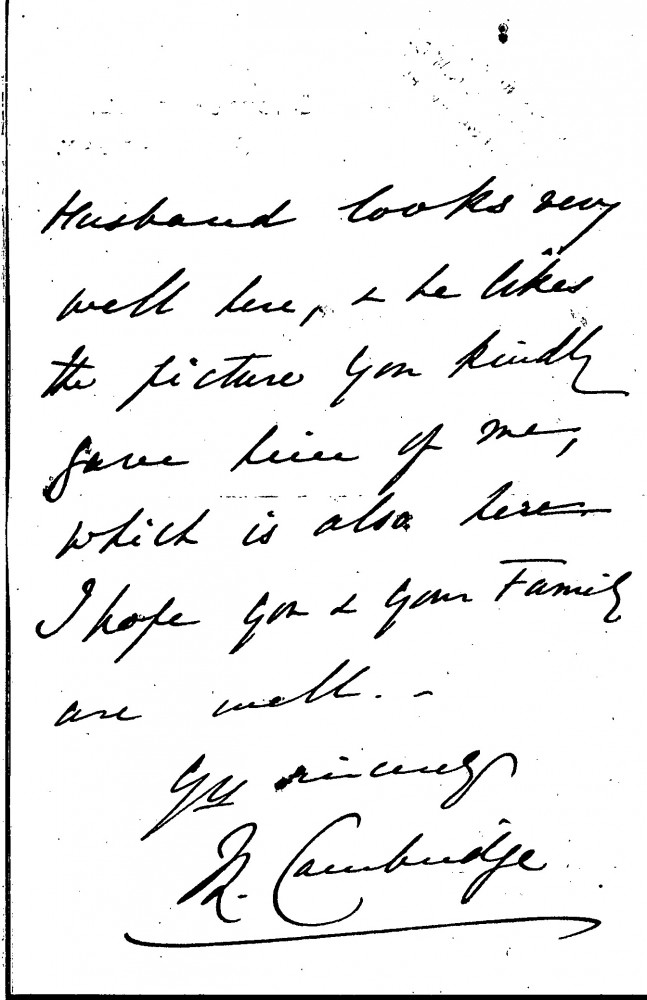 Husband looks very
well here, & he likes
the picture you kindly
gave him of me,
which is also here
I hope you & your Family
are well. -
Yrs sincerely
M. Cambridge